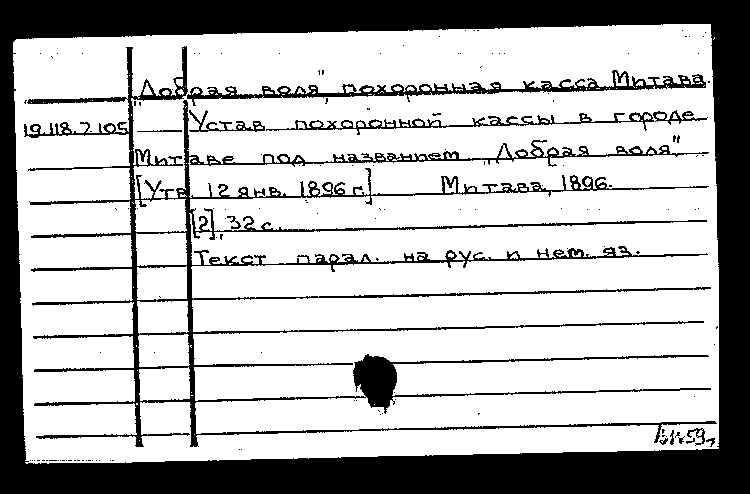 „Добрая воля", похоронная касса. Митава.
19.118.7.105 Устав похоронной кассы в городе
Митаве под названием „Добрая воля".
[Утв. 12 янв. 1896 г.] Митава, 1896.
[2], 32 с.
Текст парал. на рус. и нем. яз.